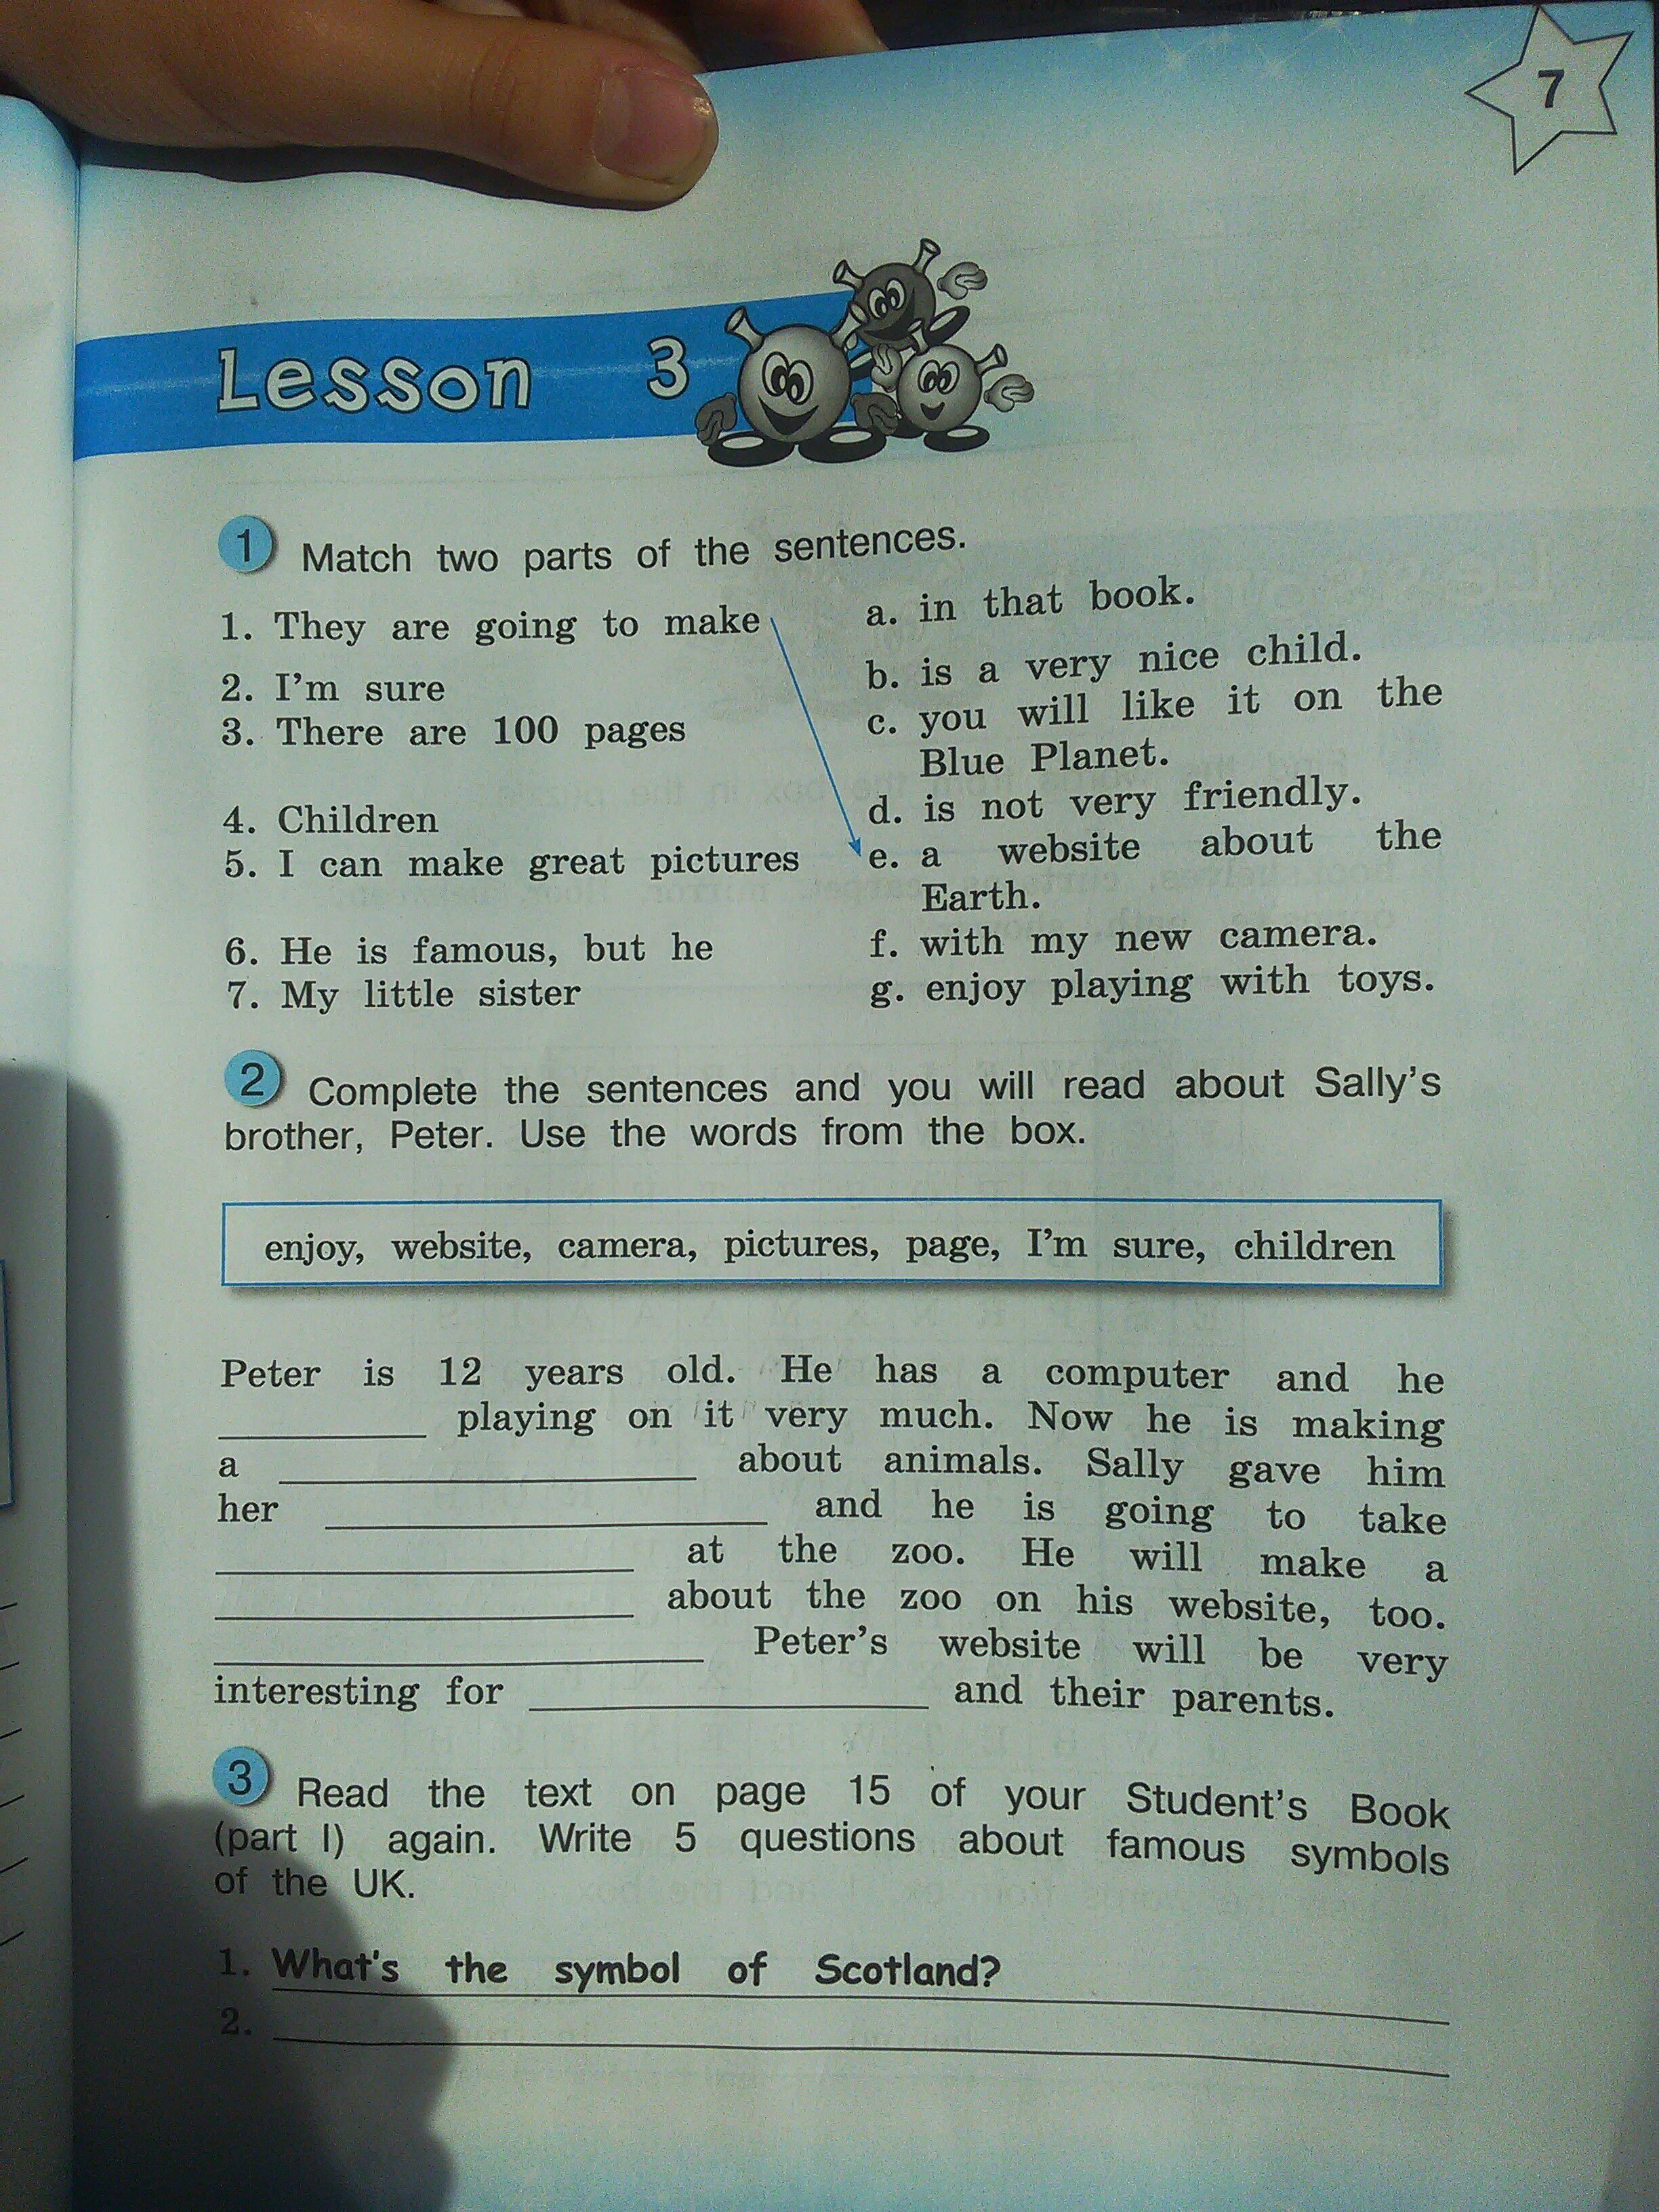 7
Lesson 3
1 Match two parts of the sentences.
1. They are going to make
2. I'm sure
3. There are 100 pages
4. Children
5. I can make great pictures
6. He is famous, but he
7. My little sister
a. in that book.
b. is a very nice child.
c. you will like it on the
Blue Planet.
d. is not very friendly.
e. a website about the
Earth.
f. with my new camera.
g. enjoy playing with toys.
2 Complete the sentences and you will read about Sally's
brother, Peter. Use the words from the box.
enjoy, website, camera, pictures, page, I'm sure, children
Peter is 12 years old. He has a computer and he
playing on it very much. Now he is making
a about animals. Sally gave him
her and he is going to take
at the zoo. He will make a
about the zoo on his website, too.
Peter's website will be very
interesting for and their parents.
3 Read the text on page 15 of your Student's Book
(part I) again. Write 5 questions about famous symbols
of the UK.
1. What's the symbol of Scotland?
2.